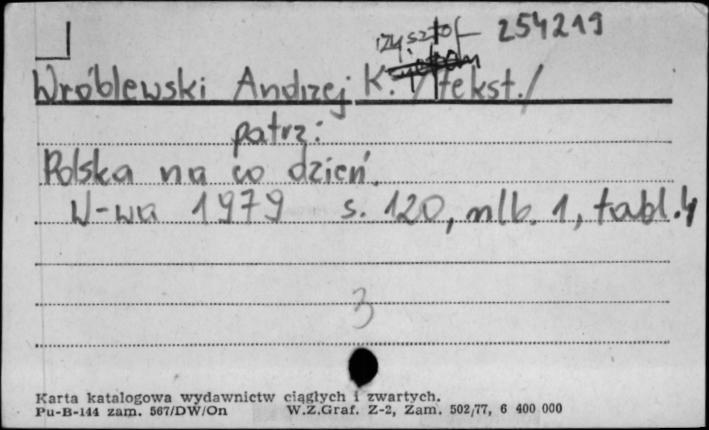 rzysztof 254219
Wróblewski Andrzej K. /tekst./
patrz:
Polska na co dzień.
W-wa 1979 s. 120, nlb. 1, tabl. 4
3
Karta katalogowa wydawnictw ciągłych i zwartych.
Pu-B-144 zam. 567/DW/On W.Z.Graf. Z-2, Zam. 502/77, 6 400 000